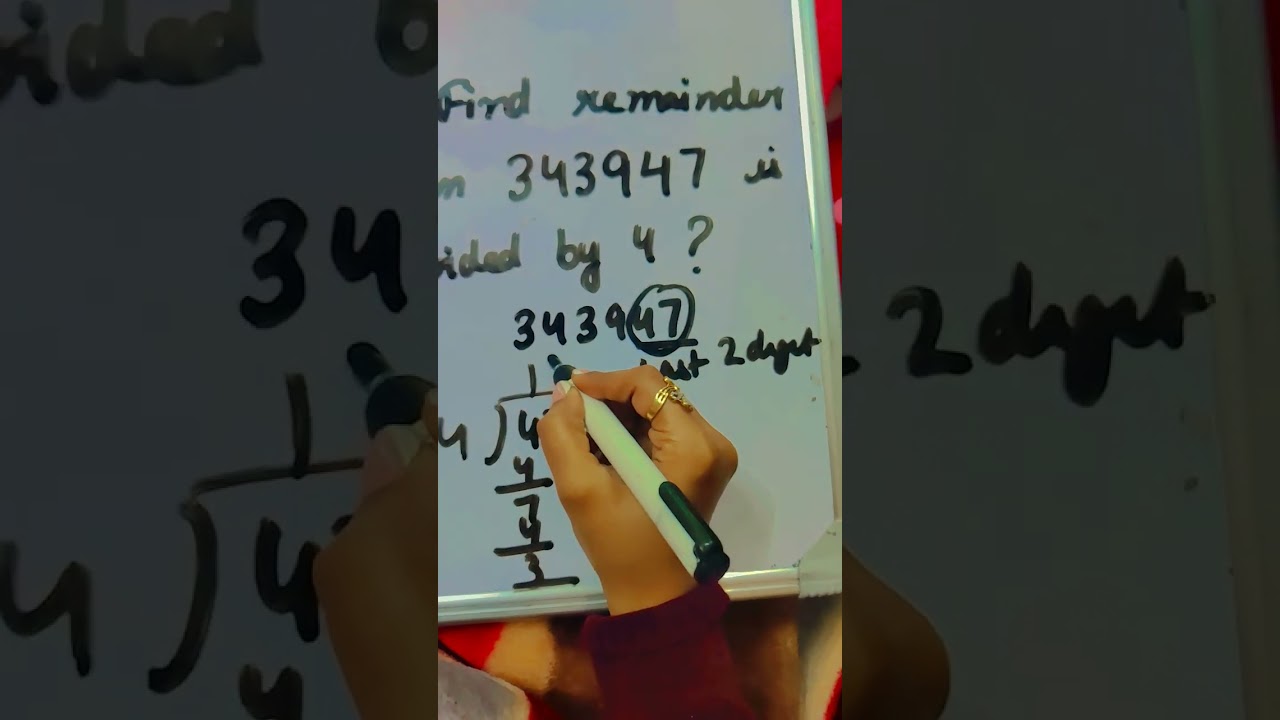 Find remainder
343947 is
by 4 ?
343947
2 digit
1
4) 4
4
7
4
3